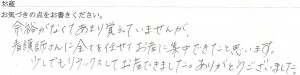 お産
お気づきの点をお書きください。
余裕がなくてあまり覚えていませんが、
看護師さんに全てを任せてお産に集中できたと思います。
少しでもリラックスしてお産できました。ありがとうございました